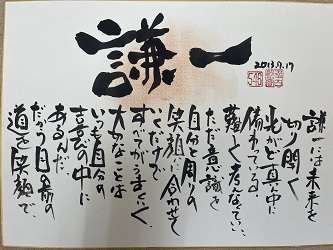 謙一
2013.9.17
謙一には未来を
切り開く
光がど真中に
備わっている。
難しく考えなくていい、
ただ意識を
自分と周りの
笑顔に合わせて
いくだけで
すべてがうまくいく、
大切なことは
いつも自分の
喜びの中に
あるんだ。
だから目の前の
道を笑顔で、